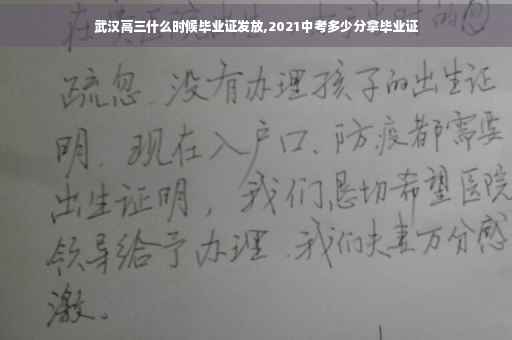 武汉高三什么时候毕业证发放,2021中考多少分拿毕业证
疏忽、没有办理孩子的出生证
明、现在入户口、防疫都需要
出生证明，我们恳切希望医院
领导给予办理、我们夫妻万分感
激。